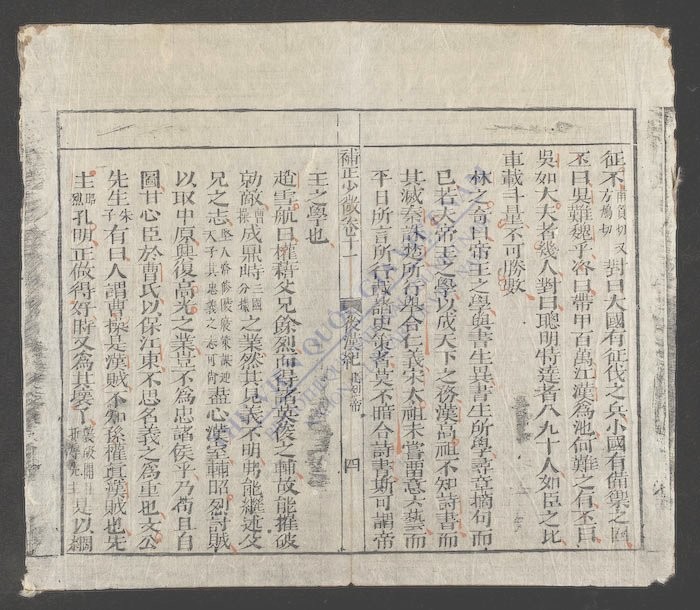 征不甫負切又方鳩切對曰大國有征伐之兵小國有備禦之固
丕曰吳難魏乎咨曰帶甲百萬江漢爲池何難之有丕曰
吳如大夫者幾人對曰聰明特達者八九十人如臣之比
車載斗量不可勝數
林之奇曰帝王之學與書生異書生所學尋章摘句而
已若夫帝王之學以成天下之務漢高祖不知詩書而
其滅秦誅楚所行與合仁義宋太祖未嘗留意六藝而
平日所言所行載諸史策者莫不暗合詩書斯可謂帝
補正少微卷十一 後漢紀 昭烈帝 四
王之學也
趙雪航曰權藉父兄餘烈而得諸英俊之輔故能摧破
勍敵曹操成鼎峙三國分據之業然其見義不明弗能繼述父
兄之志堅入策議迎天子其忠義之志可尚盡心漢室輔昭烈討賊
以取中原興復高光之業豈不為忠諸侯乎乃苟且自
圖甘心臣於曹氏以保江東不思名義之爲重也文公
先生朱子有曰人謂曹操是漢賊不知孫權真漢賊也先
主昭烈孔明正做得好時又為其壞了襲破關羽先主是以綱
THƯ VIỆN QUỐC GIA VIỆT NAM